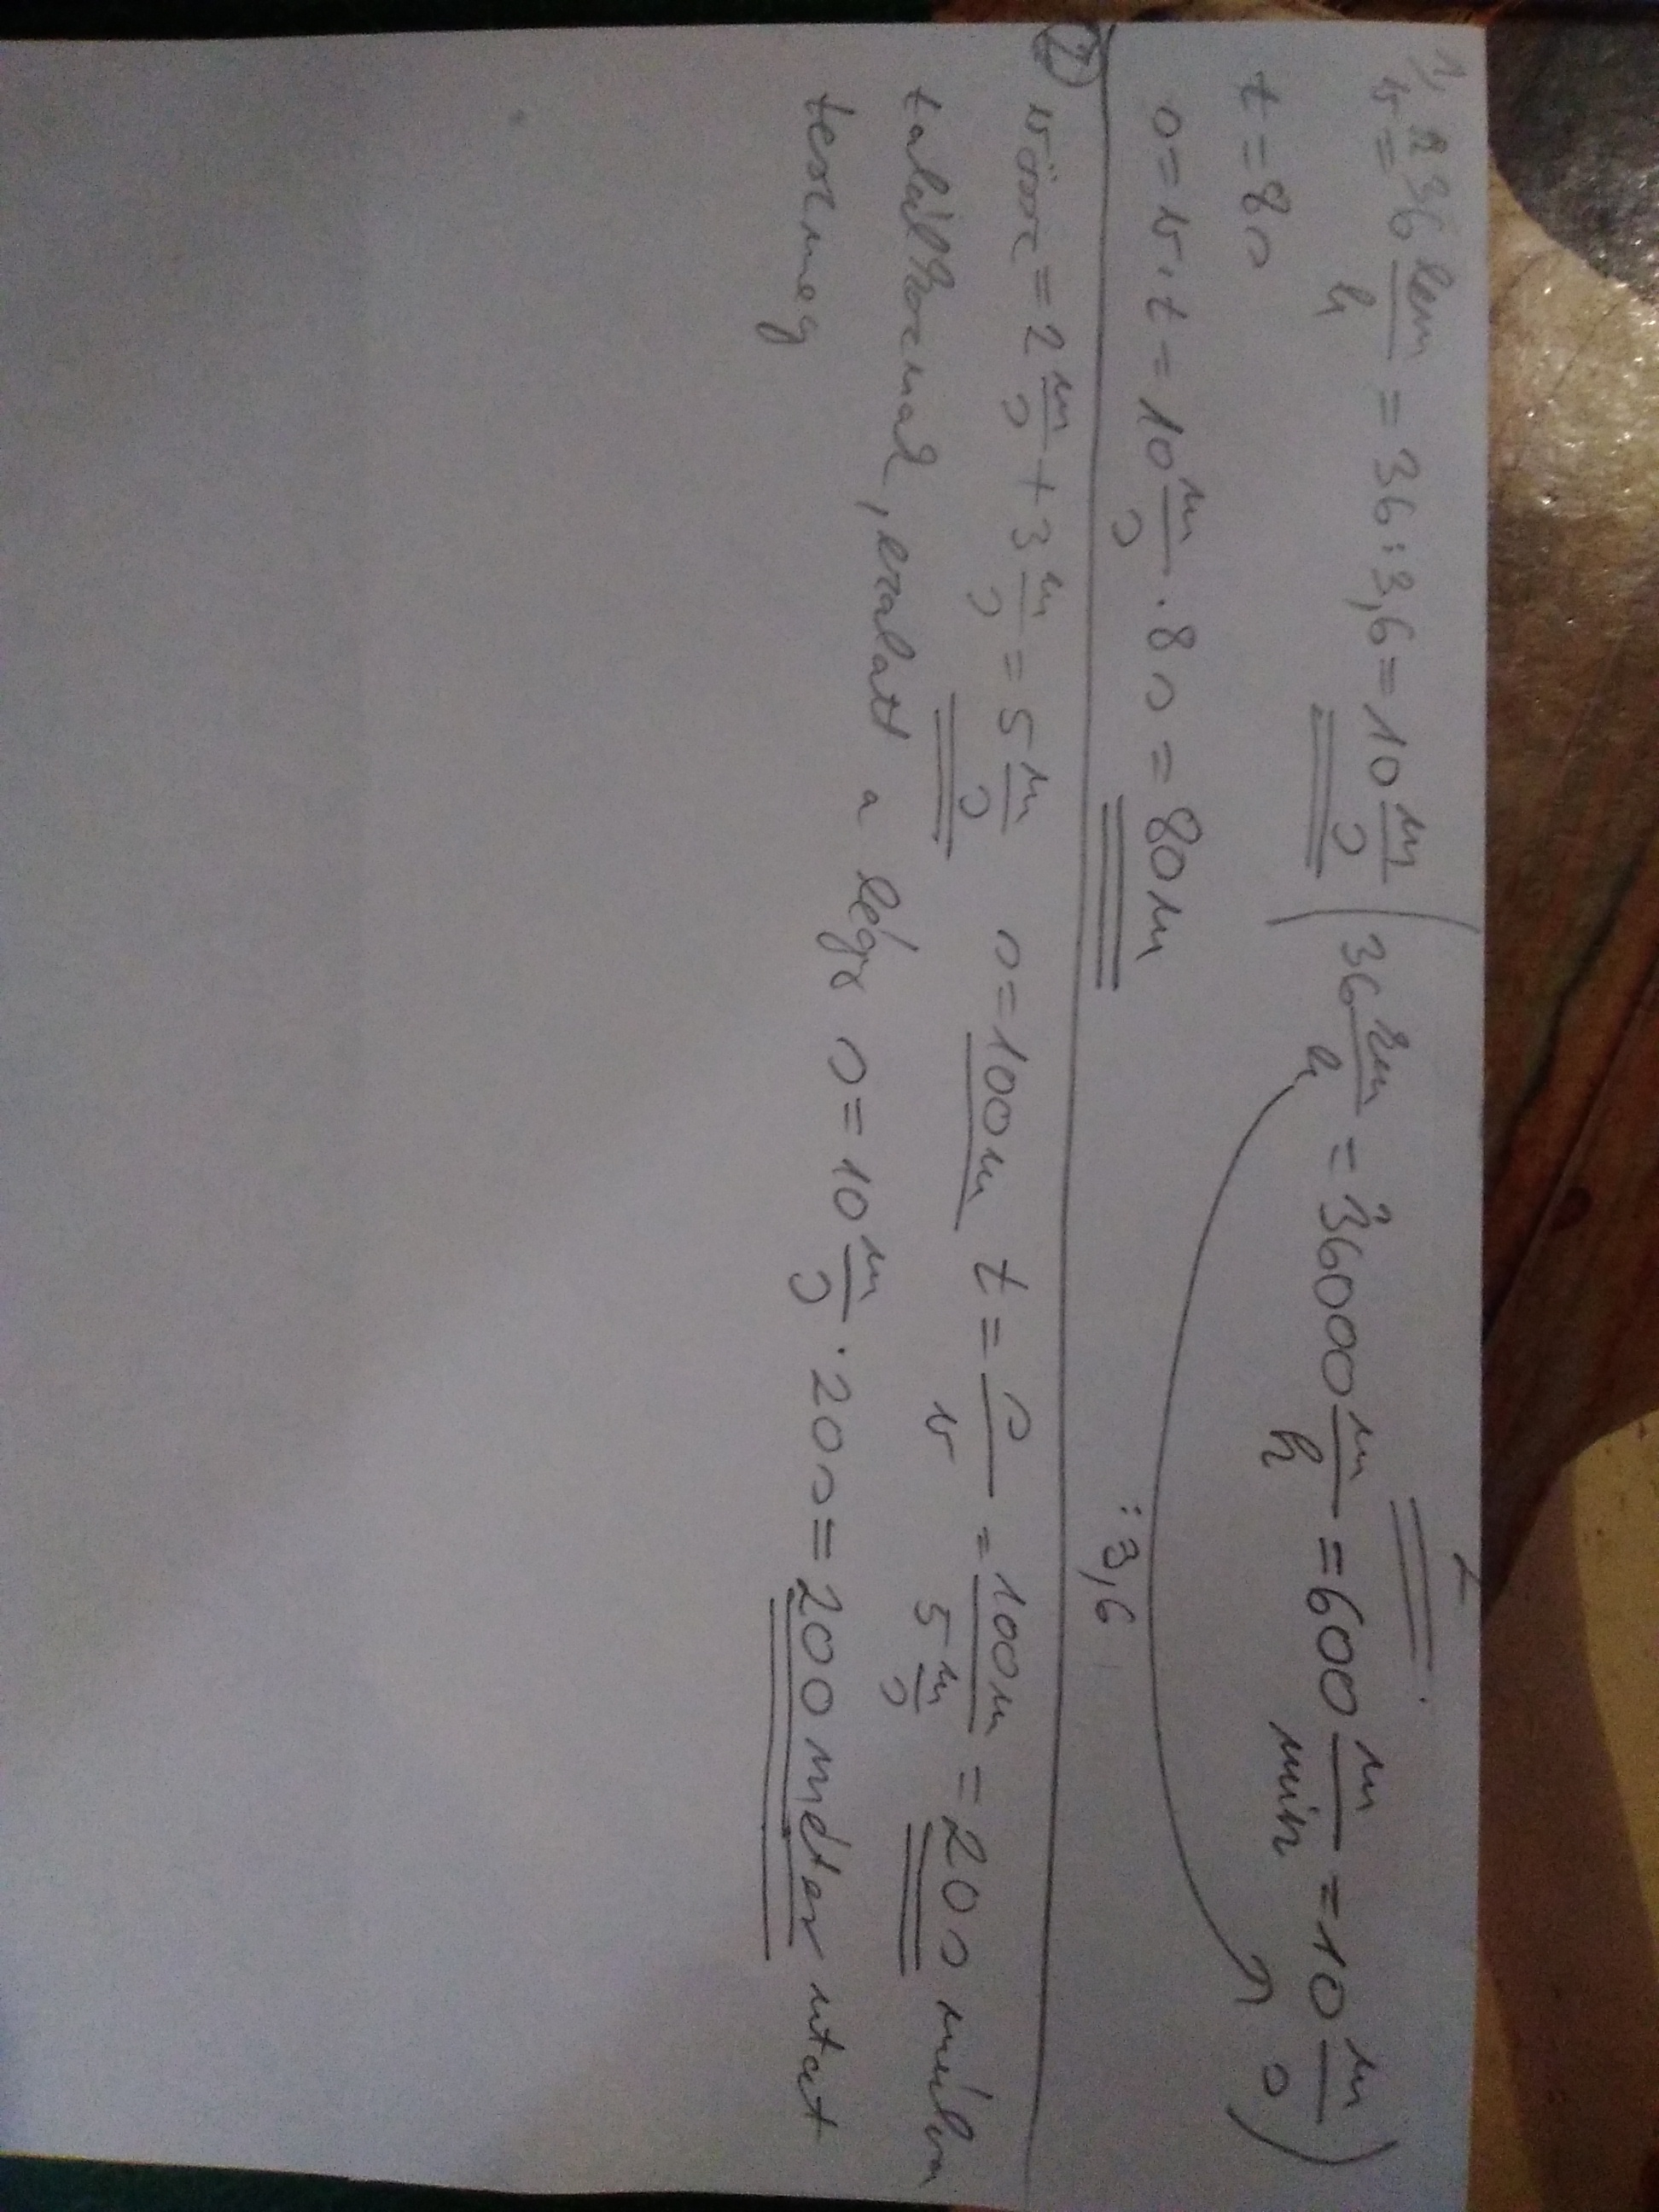 1, v = 36 km/h = 36 : 3,6 = 10 m/s (36 km/h = 36000 m/h = 600 m/min = 10 m/s)
: 3,6
t = 8 s
s = v · t = 10 m/s · 8 s = 80 m
② vössz = 2 m/s + 3 m/s = 5 m/s s = 100 m t = s/v = 100 m / 5 m/s = 20 s múlva
találkoznak, ezalatt a légy s = 10 m/s · 20 s = 200 méter utat
tesz meg